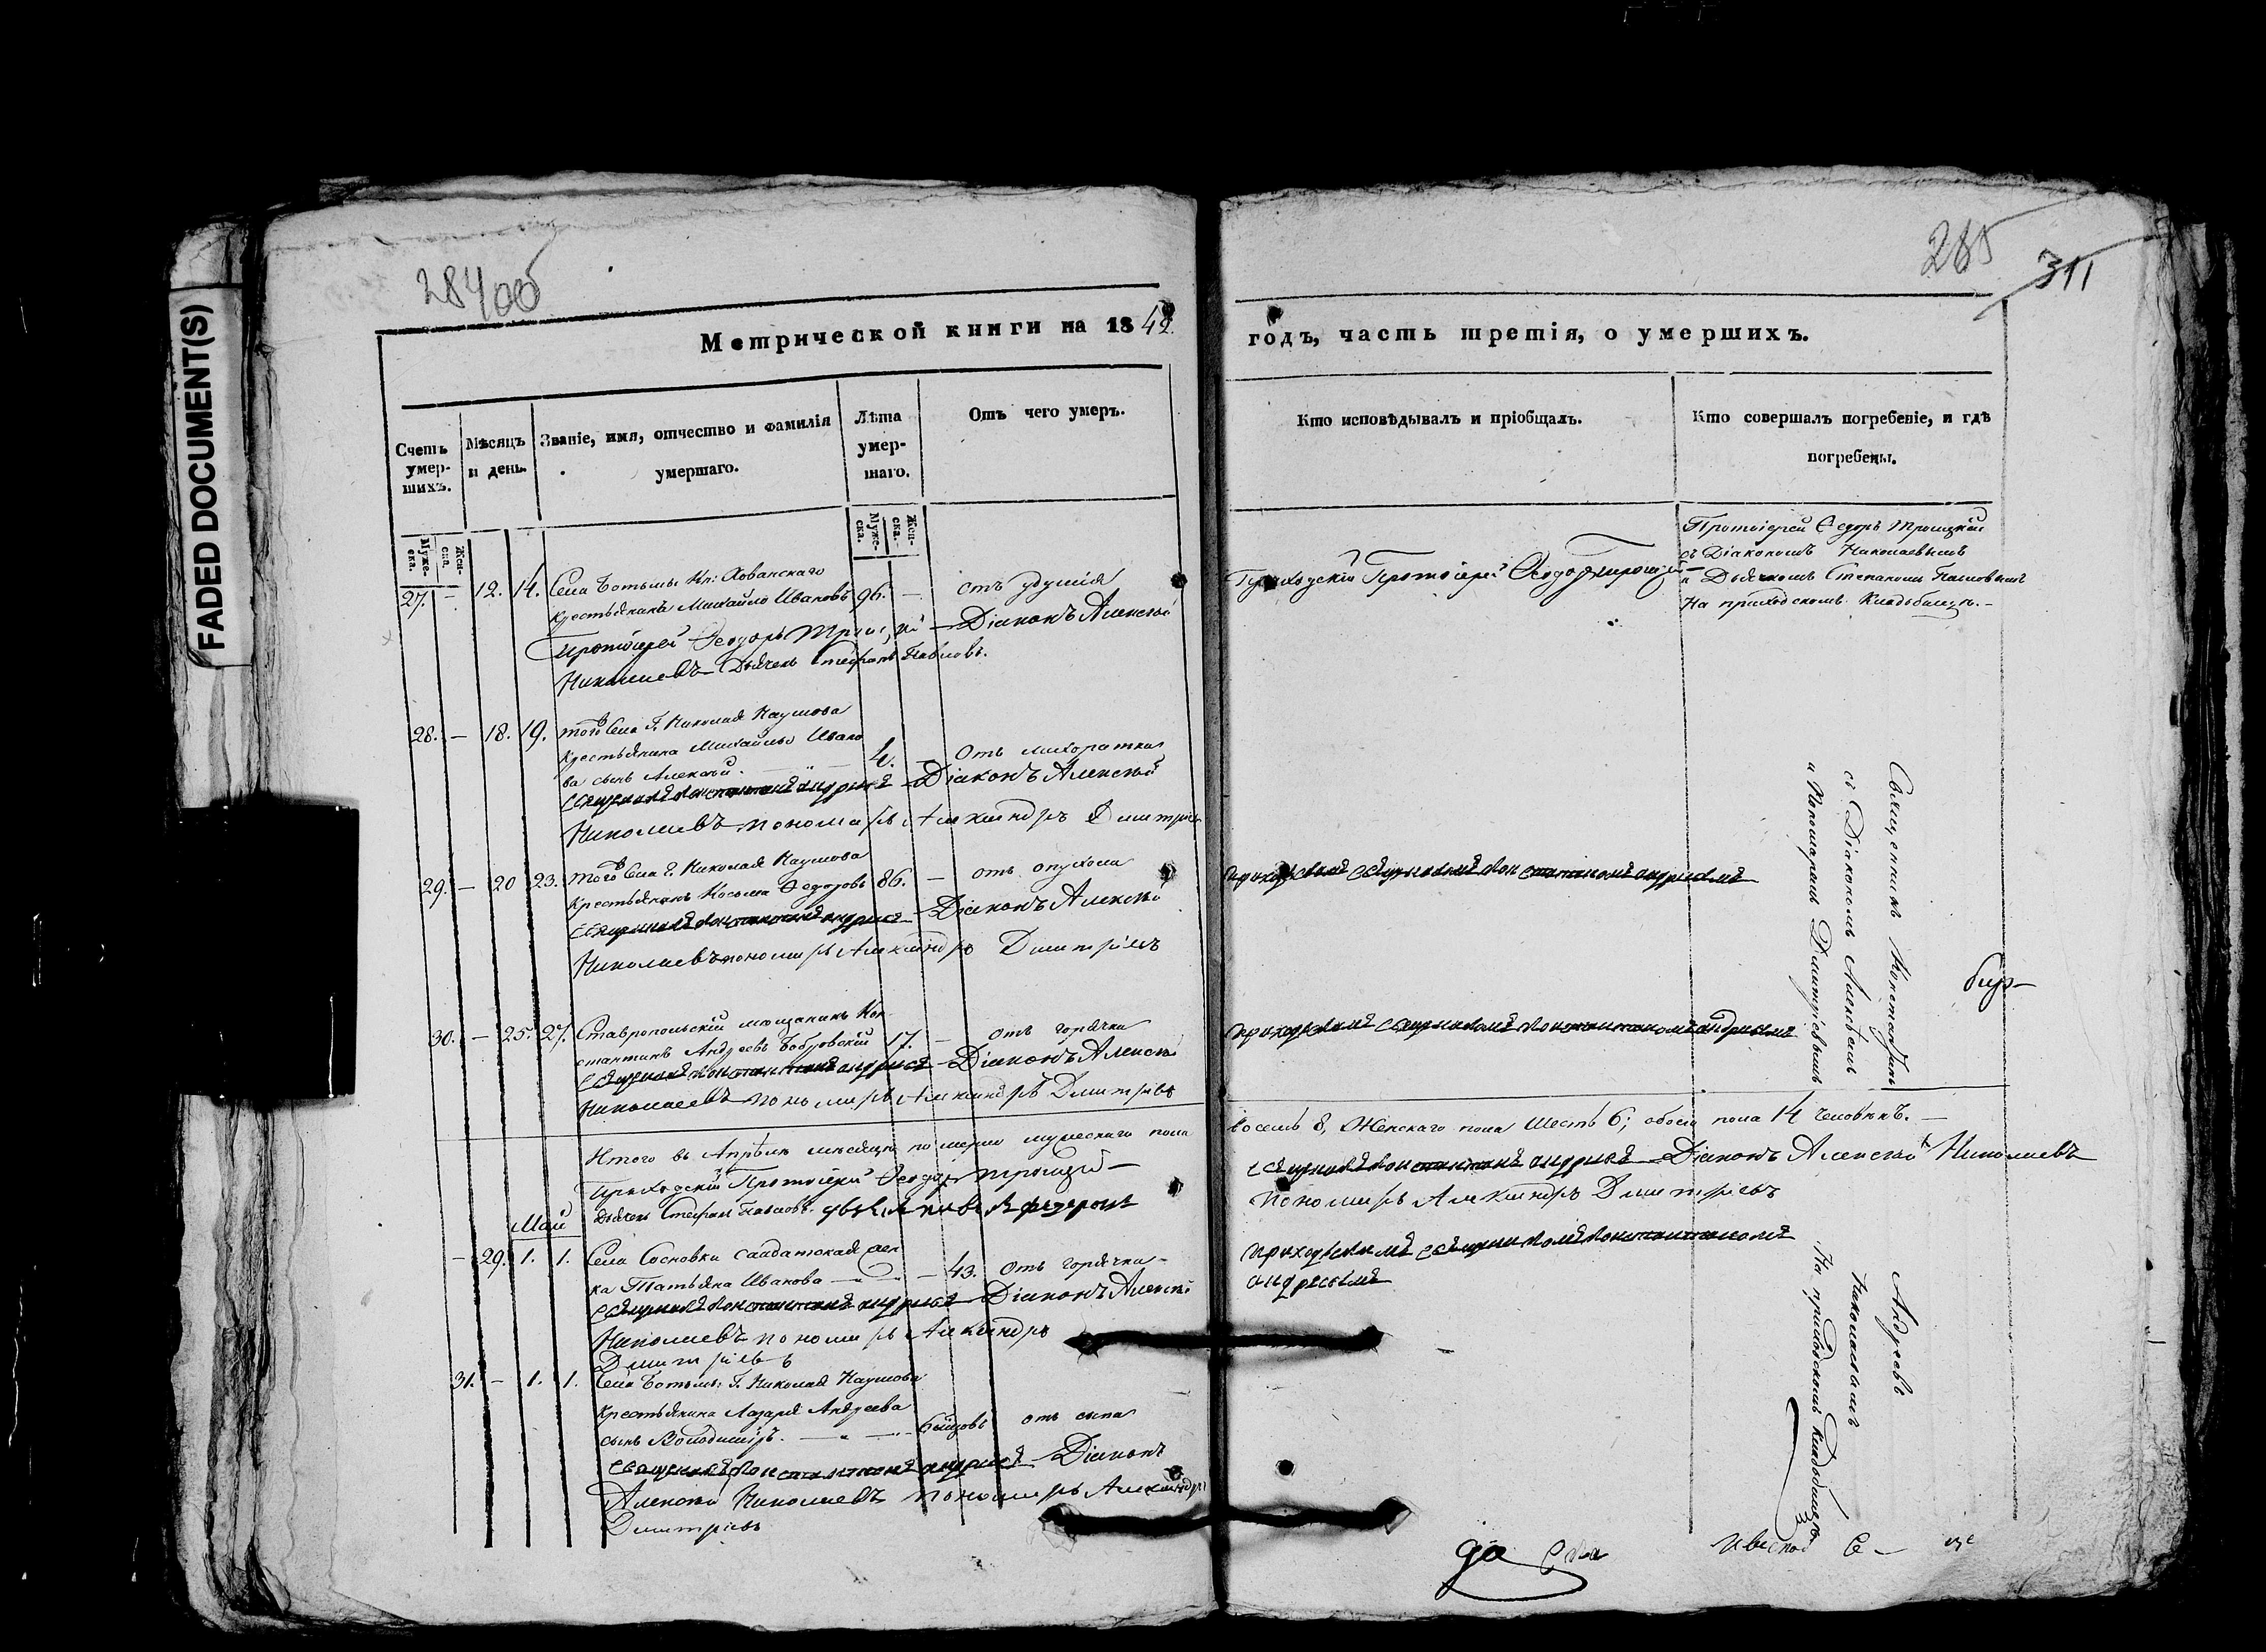 FADED DOCUMENT(S)
284об
Метрической книги на 1842.
Счетъ умер-шихъ.
Мѣсяцъ и день.
Званіе, имя, отчество и фамилія умершаго.
Лѣта умер-шаго.
Отъ чего умеръ.
Муже-ска.
Жен-ска.
Муже-ска.
Жен-ска.
27. – 12. 14. Села Ботьмы Кн: Хованскаго
крестьянинъ Михайло Ивановъ 96. – отъ удушія
Протоіерей Ѳеодоръ Троицкій Діаконъ Алексѣй
Николаевъ Дьячекъ Стефанъ Павловъ.
28. – 18. 19. того Села Г. Николая Наумова
крестьянина Михайлы Ивано
ва сынъ Алексѣй. 4. – Отъ лихоратки
Священникъ Константинъ Андреевъ Діаконъ Алексѣй
Николаевъ пономарь Александръ Дмитріевъ
29. – 20 23. того Села Г. Николая Наумова
крестьянинъ Косьма Федоровъ 86. – отъ опухоли
Священникъ Константинъ Андреевъ Діаконъ Алексѣй
Николаевъ пономарь Александръ Дмитріевъ
30. – 25. 27. Ставропольскій мещанинъ Кон
стантинъ Андреевъ Бобровскій 17. – отъ горячки
Священникъ Константинъ Андреевъ Діаконъ Алексѣй
Николаевъ пономарь Александръ Дмитріевъ
Итого въ Апрѣлѣ мѣсяцѣ померло мужескаго пола
Приходскій Протоіерей Ѳеодоръ Троицкій
Дьячекъ Стефанъ Павловъ.
Май
– 29. 1. 1. Села Сосновки салдатская
ка Татьяна Иванова – 43. Отъ горячки
Священникъ Константинъ Андреевъ Діаконъ Алексѣй
Николаевъ пономарь Александръ
Дмитріевъ
31. – 1. 1. Села Ботьмы: Г. Николая Наумова
крестьянина Лазаря Андреева
сынъ Володимiръ. отъ сыпи
Священникъ Константинъ Андреевъ Діаконъ
Алексѣй Николаевъ пономарь Александръ
Дмитріевъ
285
311
годъ, часть третія, о умершихъ.
Кто исповѣдывалъ и пріобщалъ.
Кто совершалъ погребеніе, и гдѣ погребены.
Приходскій Протоіерей Ѳеодоръ Троицкій
Протоіерей Федоръ Троицкій
съ Діакономъ Николаевымъ
и Дьячкомъ Степаномъ Павловымъ
На приходскомъ Кладбищѣ.
приходскимъ священникомъ Константиномъ андреевымъ
приходскимъ священникомъ Константиномъ андреевымъ
Священникъ Константинъ
съ Діакономъ Алексѣемъ
и Пономаремъ Димитріевымъ
восемь 8, Женскаго пола шесть 6; обоего пола 14 человѣкъ.
священникъ Константинъ андреевъ Діаконъ Алексѣй Николаевъ
пономарь Александръ Дмитріевъ
приходскимъ священникомъ Константиномъ
андреевымъ
Андреевъ
Николаевымъ
На приходскомъ кладбищѣ